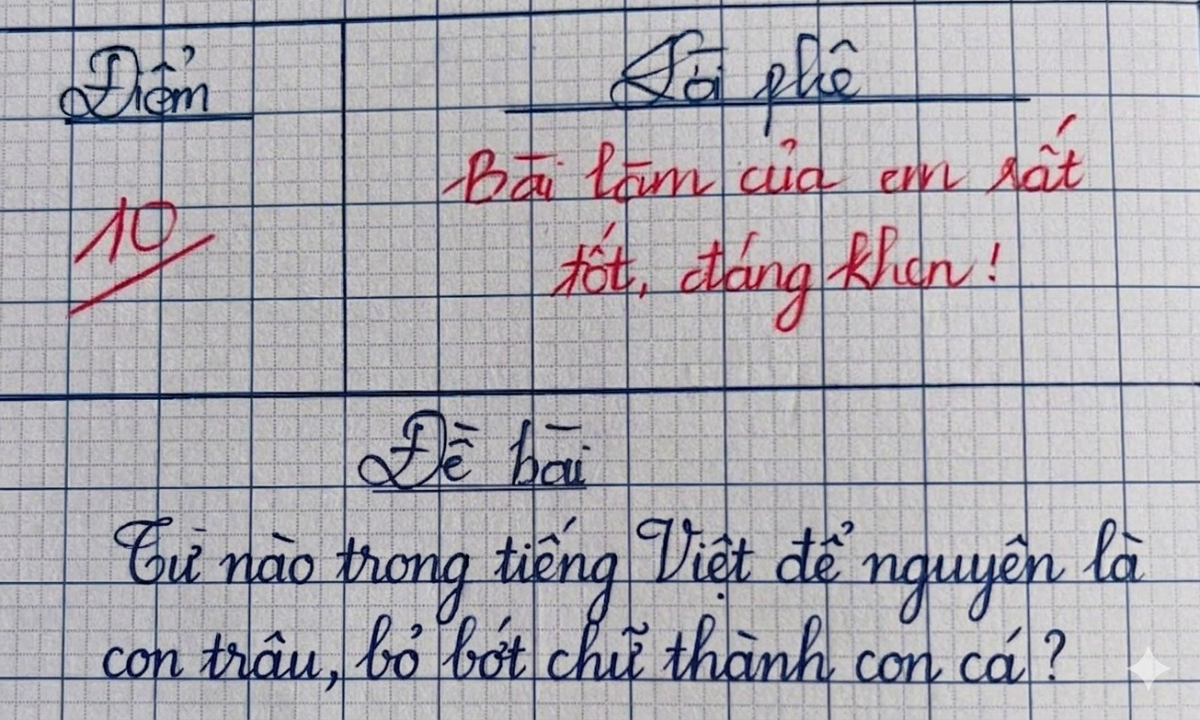 Điểm
Lời phê
Bài làm của em rất
tốt, đáng khen!
10
Đề bài
Từ nào trong tiếng Việt để nguyên là
con trâu, bỏ bớt chữ thành con cá?